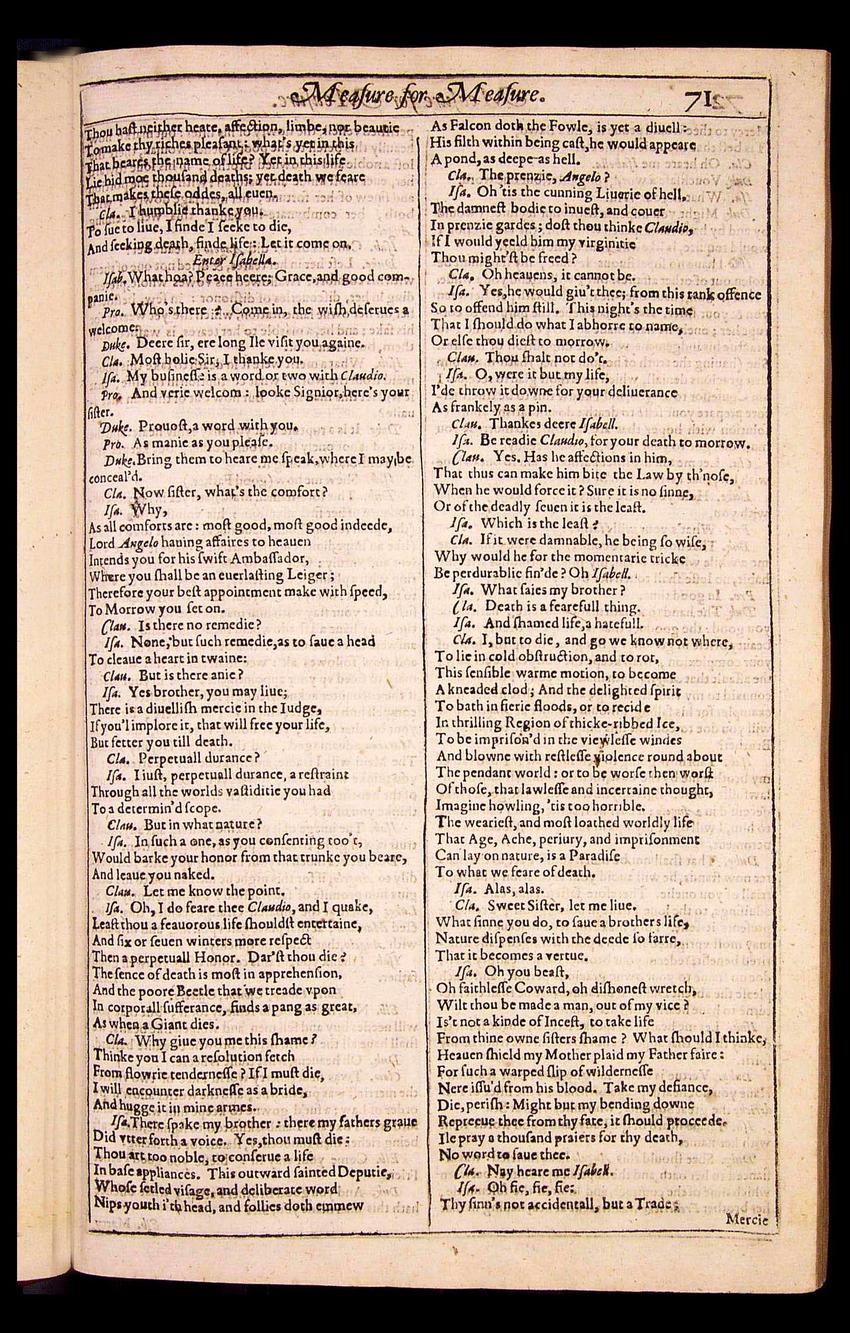 Meaſure for Meaſure. 71
Thou haſt neither heate, affection, limbe, nor beautie
To make thy riches pleaſant: what's yet in this
That beares the name of life? Yet in this life
Lie hid moe thouſand deaths; yet death we feare
That makes theſe oddes, all euen.
Cla. I humblie thanke you.
To ſue to liue, I finde I ſeeke to die,
And ſeeking death, finde life: Let it come on.
Enter Iſabella.
Iſab. What hoa? Peace heere; Grace, and good com-
panie.
Pro. Who's there? Come in, the wiſh deſerues a
welcome.
Duke. Deere ſir, ere long Ile viſit you againe.
Cla. Moſt holie Sir, I thanke you.
Iſa. My buſineſſe is a word or two with Claudio.
Pro. And verie welcom: looke Signior, here's your
ſiſter.
Duke. Prouoſt, a word with you.
Pro. As manie as you pleaſe.
Duke. Bring them to heare me ſpeak, where I may be
conceal'd.
Cla. Now ſiſter, what's the comfort?
Iſa. Why,
As all comforts are: moſt good, moſt good indeede,
Lord Angelo hauing affaires to heauen
Intends you for his ſwift Ambaſſador,
Where you ſhall be an euerlaſting Leiger;
Therefore your beſt appointment make with ſpeed,
To Morrow you ſet on.
Clau. Is there no remedie?
Iſa. None, but ſuch remedie, as to ſaue a head
To cleaue a heart in twaine:
Clau. But is there anie?
Iſa. Yes brother, you may liue;
There is a diuelliſh mercie in the Iudge,
If you'l implore it, that will free your life,
But fetter you till death.
Cla. Perpetuall durance?
Iſa. I iuſt, perpetuall durance, a reſtraint
Through all the worlds vaſtiditie you had
To a determin'd ſcope.
Clau. But in what nature?
Iſa. In ſuch a one, as you conſenting too't,
Would barke your honor from that trunke you beare,
And leaue you naked.
Clau. Let me know the point.
Iſa. Oh, I do feare thee Claudio, and I quake,
Leaſt thou a feauorous life ſhouldſt entertaine,
And ſix or ſeuen winters more reſpect
Then a perpetuall Honor. Dar'ſt thou die?
The ſence of death is moſt in apprehenſion,
And the poore Beetle that we treade vpon
In corporall ſufferance, finds a pang as great,
As when a Giant dies.
Cla. Why giue you me this ſhame?
Thinke you I can a reſolution fetch
From flowrie tenderneſſe? If I muſt die,
I will encounter darkneſſe as a bride,
And hugge it in mine armes.
Iſa. There ſpake my brother: there my fathers graue
Did vtter forth a voice. Yes, thou muſt die:
Thou art too noble, to conſerue a life
In baſe appliances. This outward ſainted Deputie,
Whoſe ſetled viſage, and deliberate word
Nips youth i'th head, and follies doth emmew
As Falcon doth the Fowle, is yet a diuell:
His filth within being caſt, he would appeare
A pond, as deepe as hell.
Cla. The prenzie, Angelo?
Iſa. Oh 'tis the cunning Liuerie of hell,
The damneſt bodie to inueſt, and couer
In prenzie gardes; doſt thou thinke Claudio,
If I would yeeld him my virginitie
Thou might'ſt be freed?
Cla. Oh heauens, it cannot be.
Iſa. Yes, he would giu't thee; from this rank offence
So to offend him ſtill. This night's the time
That I ſhould do what I abhorre to name,
Or elſe thou dieſt to morrow.
Clau. Thou ſhalt not do't.
Iſa. O, were it but my life,
I'de throw it downe for your deliuerance
As frankely as a pin.
Clau. Thankes deere Iſabell.
Iſa. Be readie Claudio, for your death to morrow.
Clau. Yes. Has he affections in him,
That thus can make him bite the Law by th'noſe,
When he would force it? Sure it is no ſinne,
Or of the deadly ſeuen it is the leaſt.
Iſa. Which is the leaſt?
Cla. If it were damnable, he being ſo wiſe,
Why would he for the momentarie tricke
Be perdurablie fin'de? Oh Iſabell.
Iſa. What ſaies my brother?
Cla. Death is a fearefull thing.
Iſa. And ſhamed life, a hatefull.
Cla. I, but to die, and go we know not where,
To lie in cold obſtruction, and to rot,
This ſenſible warme motion, to become
A kneaded clod; And the delighted ſpirit
To bath in fierie floods, or to recide
In thrilling Region of thicke-ribbed Ice,
To be impriſon'd in the viewleſſe windes
And blowne with reſtleſſe violence round about
The pendant world: or to be worſe then worſt
Of thoſe, that lawleſſe and incertaine thought,
Imagine howling, 'tis too horrible.
The weariеſt, and moſt loathed worldly life
That Age, Ache, periury, and impriſonment
Can lay on nature, is a Paradiſe
To what we feare of death.
Iſa. Alas, alas.
Cla. Sweet Siſter, let me liue.
What ſinne you do, to ſaue a brothers life,
Nature diſpenſes with the deede ſo farre,
That it becomes a vertue.
Iſa. Oh you beaſt,
Oh faithleſſe Coward, oh diſhoneſt wretch,
Wilt thou be made a man, out of my vice?
Is't not a kinde of Inceſt, to take life
From thine owne ſiſters ſhame? What ſhould I thinke,
Heauen ſhield my Mother plaid my Father faire:
For ſuch a warped ſlip of wilderneſſe
Nere iſſu'd from his blood. Take my defiance,
Die, periſh: Might but my bending downe
Repreeue thee from thy fate, it ſhould proceede.
Ile pray a thouſand praiers for thy death,
No word to ſaue thee.
Cla. Nay heare me Iſabell.
Iſa. Oh fie, fie, fie:
Thy ſinn's not accidentall, but a Trade;
Mercie